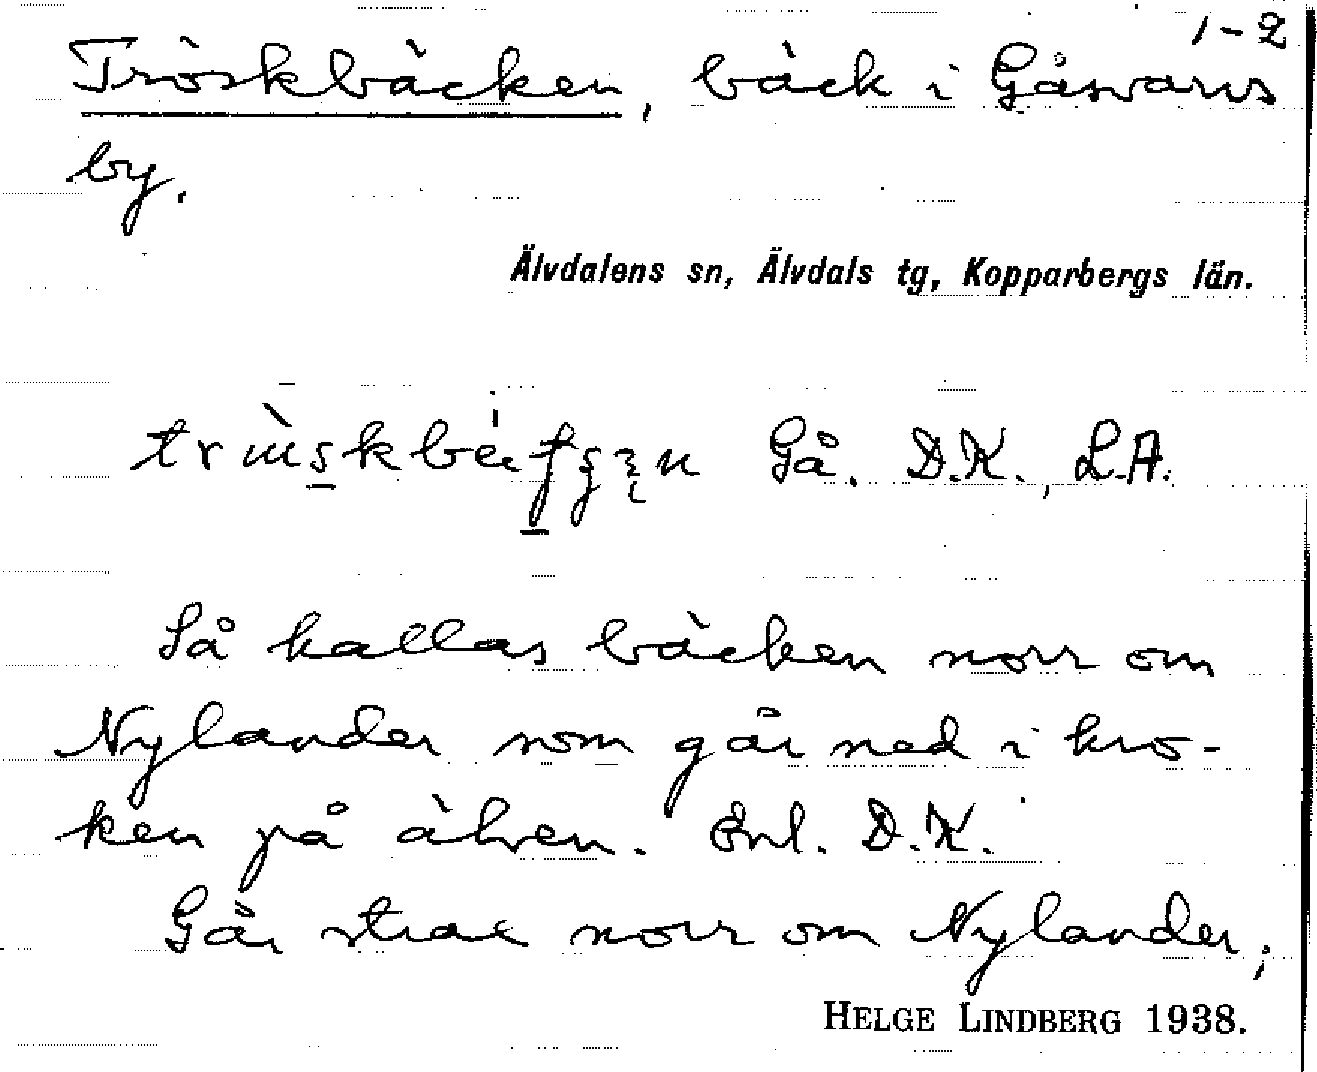 1-2
Tröskbäcken, bäck i Gåsvarvs
by.
Älvdalens sn, Älvdals tg, Kopparbergs län.
Gå. D.K., L.A.
Så kallas bäcken norr om
Nylander som går ned i kro-
ken på älven. Enl. D.K.
Går strax norr om Nylander;
HELGE LINDBERG 1938.